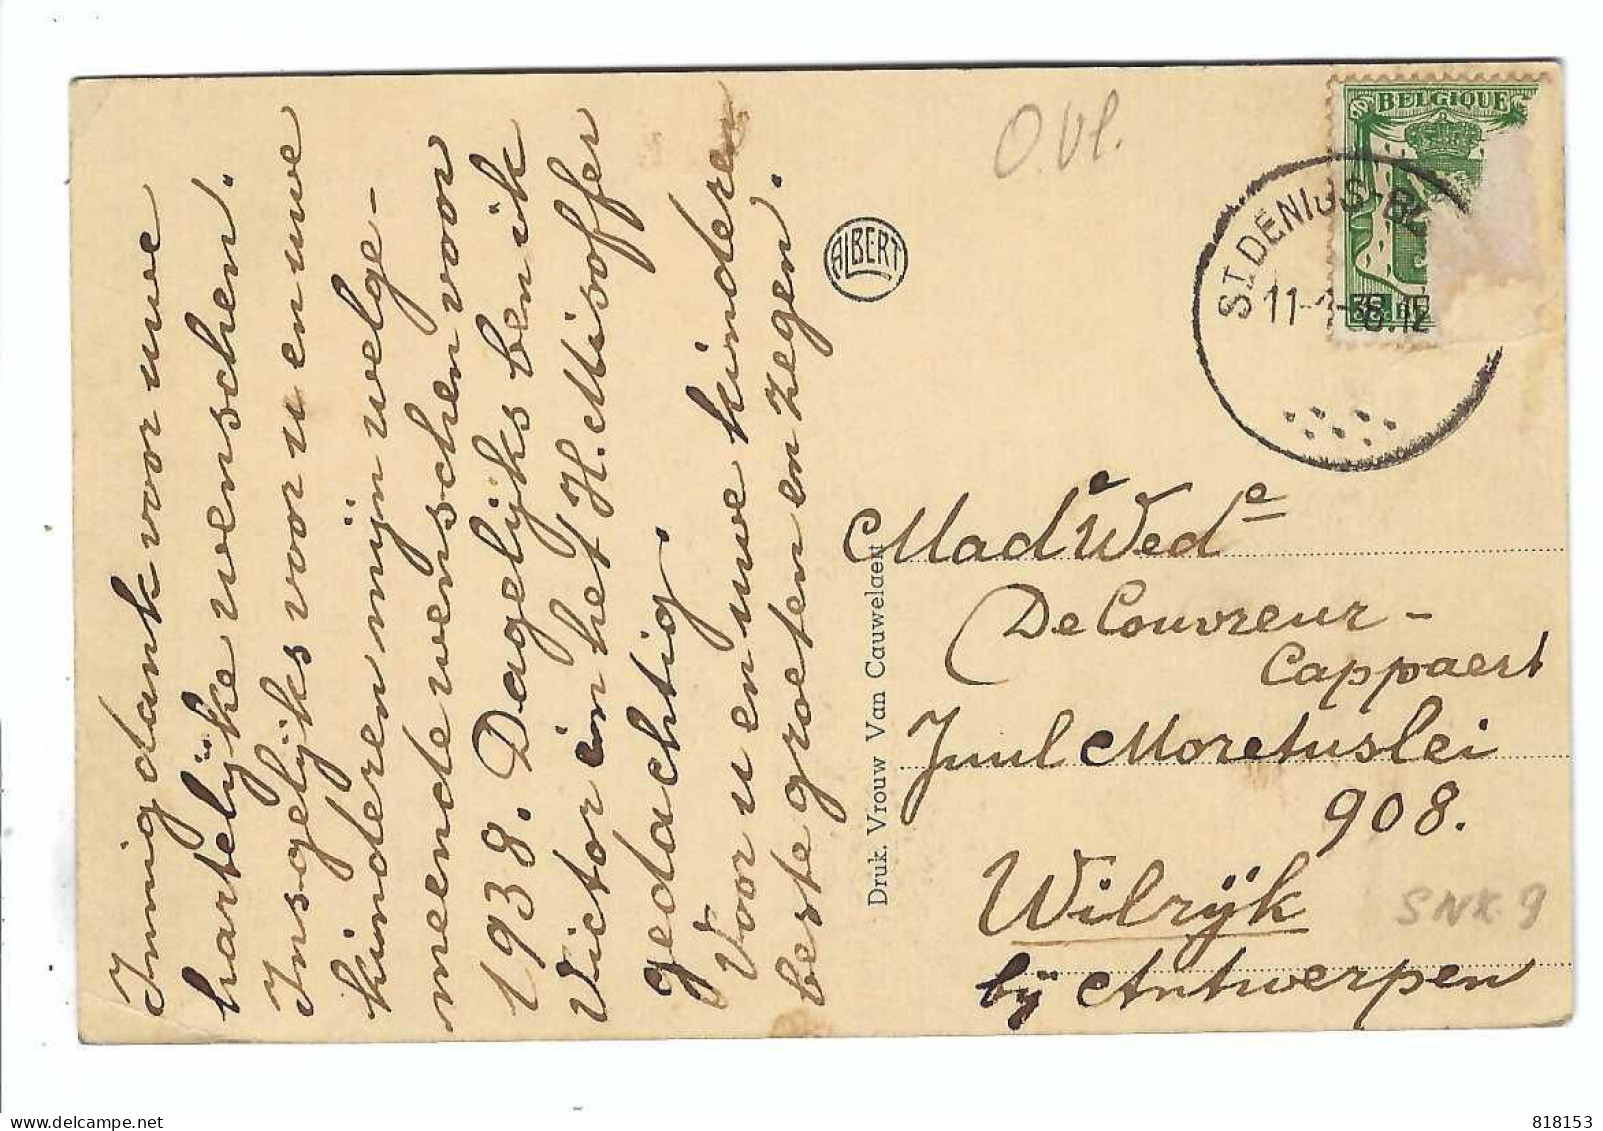 Innig dank voor uwe
hartelijke wenschen.
Insgelijks voor u en uwe
kinderen mijn welge-
meende wenschen voor
1938. Dagelijks ben ik
Victor in het H. Misoffer
gedachtig.
Voor u en uwe kinderen
beste groeten en zegen.
ALBERT
Druk. Vrouw Van Cauwelaert
O.Vl.
BELGIQUE
ST. DENIJS-
11-1-
Made Wede
De Couvreur-
Cappaert
Juul Moretuslei
908.
Wilrijk
bij Antwerpen
SNK. 9
818153